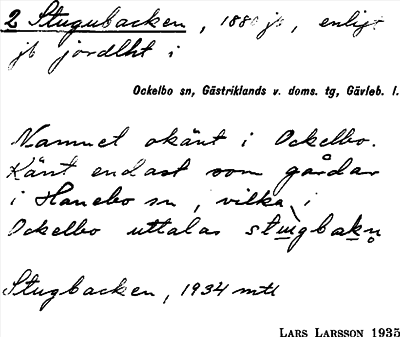 2 Stugubacken, 188 jb, enligt
jb jordlht i
Ockelbo sn, Gästriklands v. doms. tg, Gävleb. l.
Namnet okänt i Ockelbo.
Känt endast som gårdar
i Hanebo sn, vilka i
Ockelbo uttalas
Stugbacken, 1934 mtl
LARS LARSSON 1935